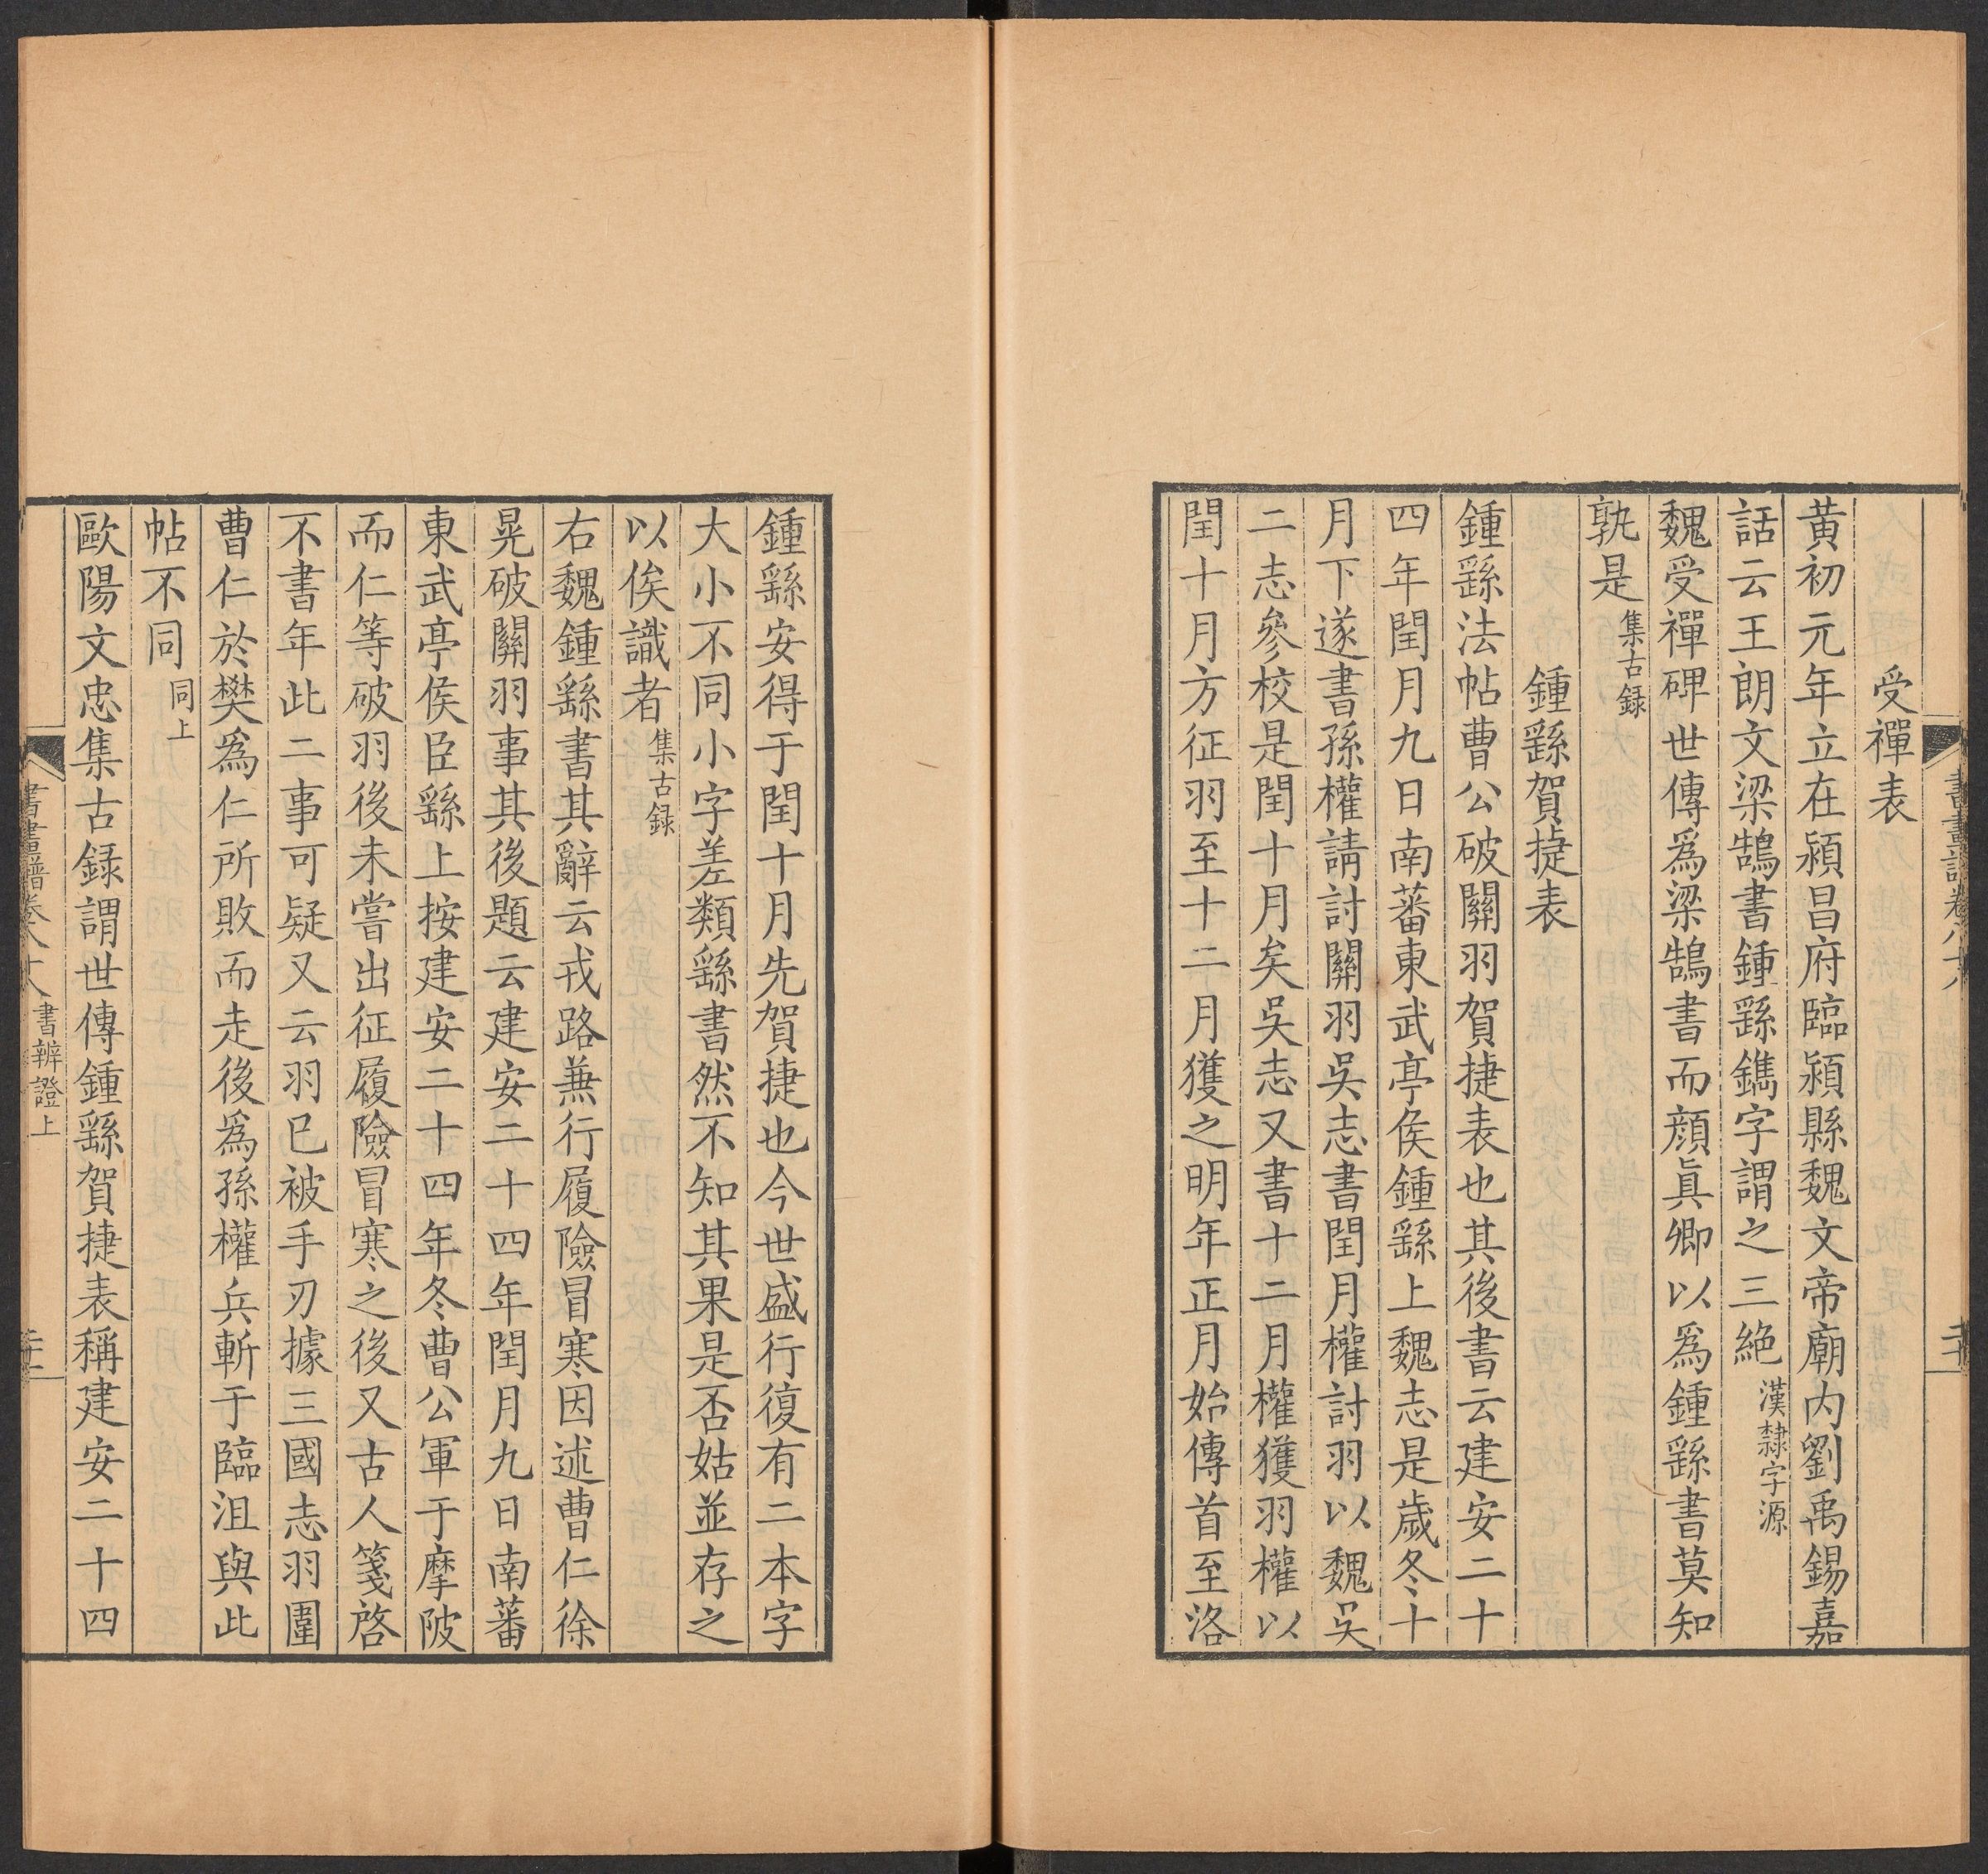 受禪表
黄初元年立在潁昌府臨潁縣魏文帝廟内劉禹錫嘉
話云王朗文梁鵠書鍾繇鐫字謂之三絶漢隸字源
魏受禪碑世傳爲梁鵠書而顔眞卿以爲鍾繇書莫知
孰是集古録
鍾繇賀捷表
鍾繇法帖曹公破關羽賀捷表也其後書云建安二十
四年閏月九日南蕃東武亭侯鍾繇上魏志是歲冬十
月下遂書孫權請討關羽吳志書閏月權討羽以魏吳
二志參校是閏十月矣吳志又書十二月權獲羽權以
閏十月方征羽至十二月獲之明年正月始傳首至洛
書畫譜卷八十八
二十
鍾繇安得于閏十月先賀捷也今世盛行復有二本字
大小不同小字差類繇書然不知其果是否姑並存之
以俟識者集古録
右魏鍾繇書其辭云戎路兼行履險冒寒因述曹仁徐
晃破關羽事其後題云建安二十四年閏月九日南蕃
東武亭侯臣繇上按建安二十四年冬曹公軍于摩陂
而仁等破羽後未嘗出征履險冒寒之後又古人箋啓
不書年此二事可疑又云羽已被手刃據三國志羽圍
曹仁於樊爲仁所敗而走後爲孫權兵斬于臨沮與此
帖不同同上
歐陽文忠集古録謂世傳鍾繇賀捷表稱建安二十四
書畫譜卷八十八
書辨證上